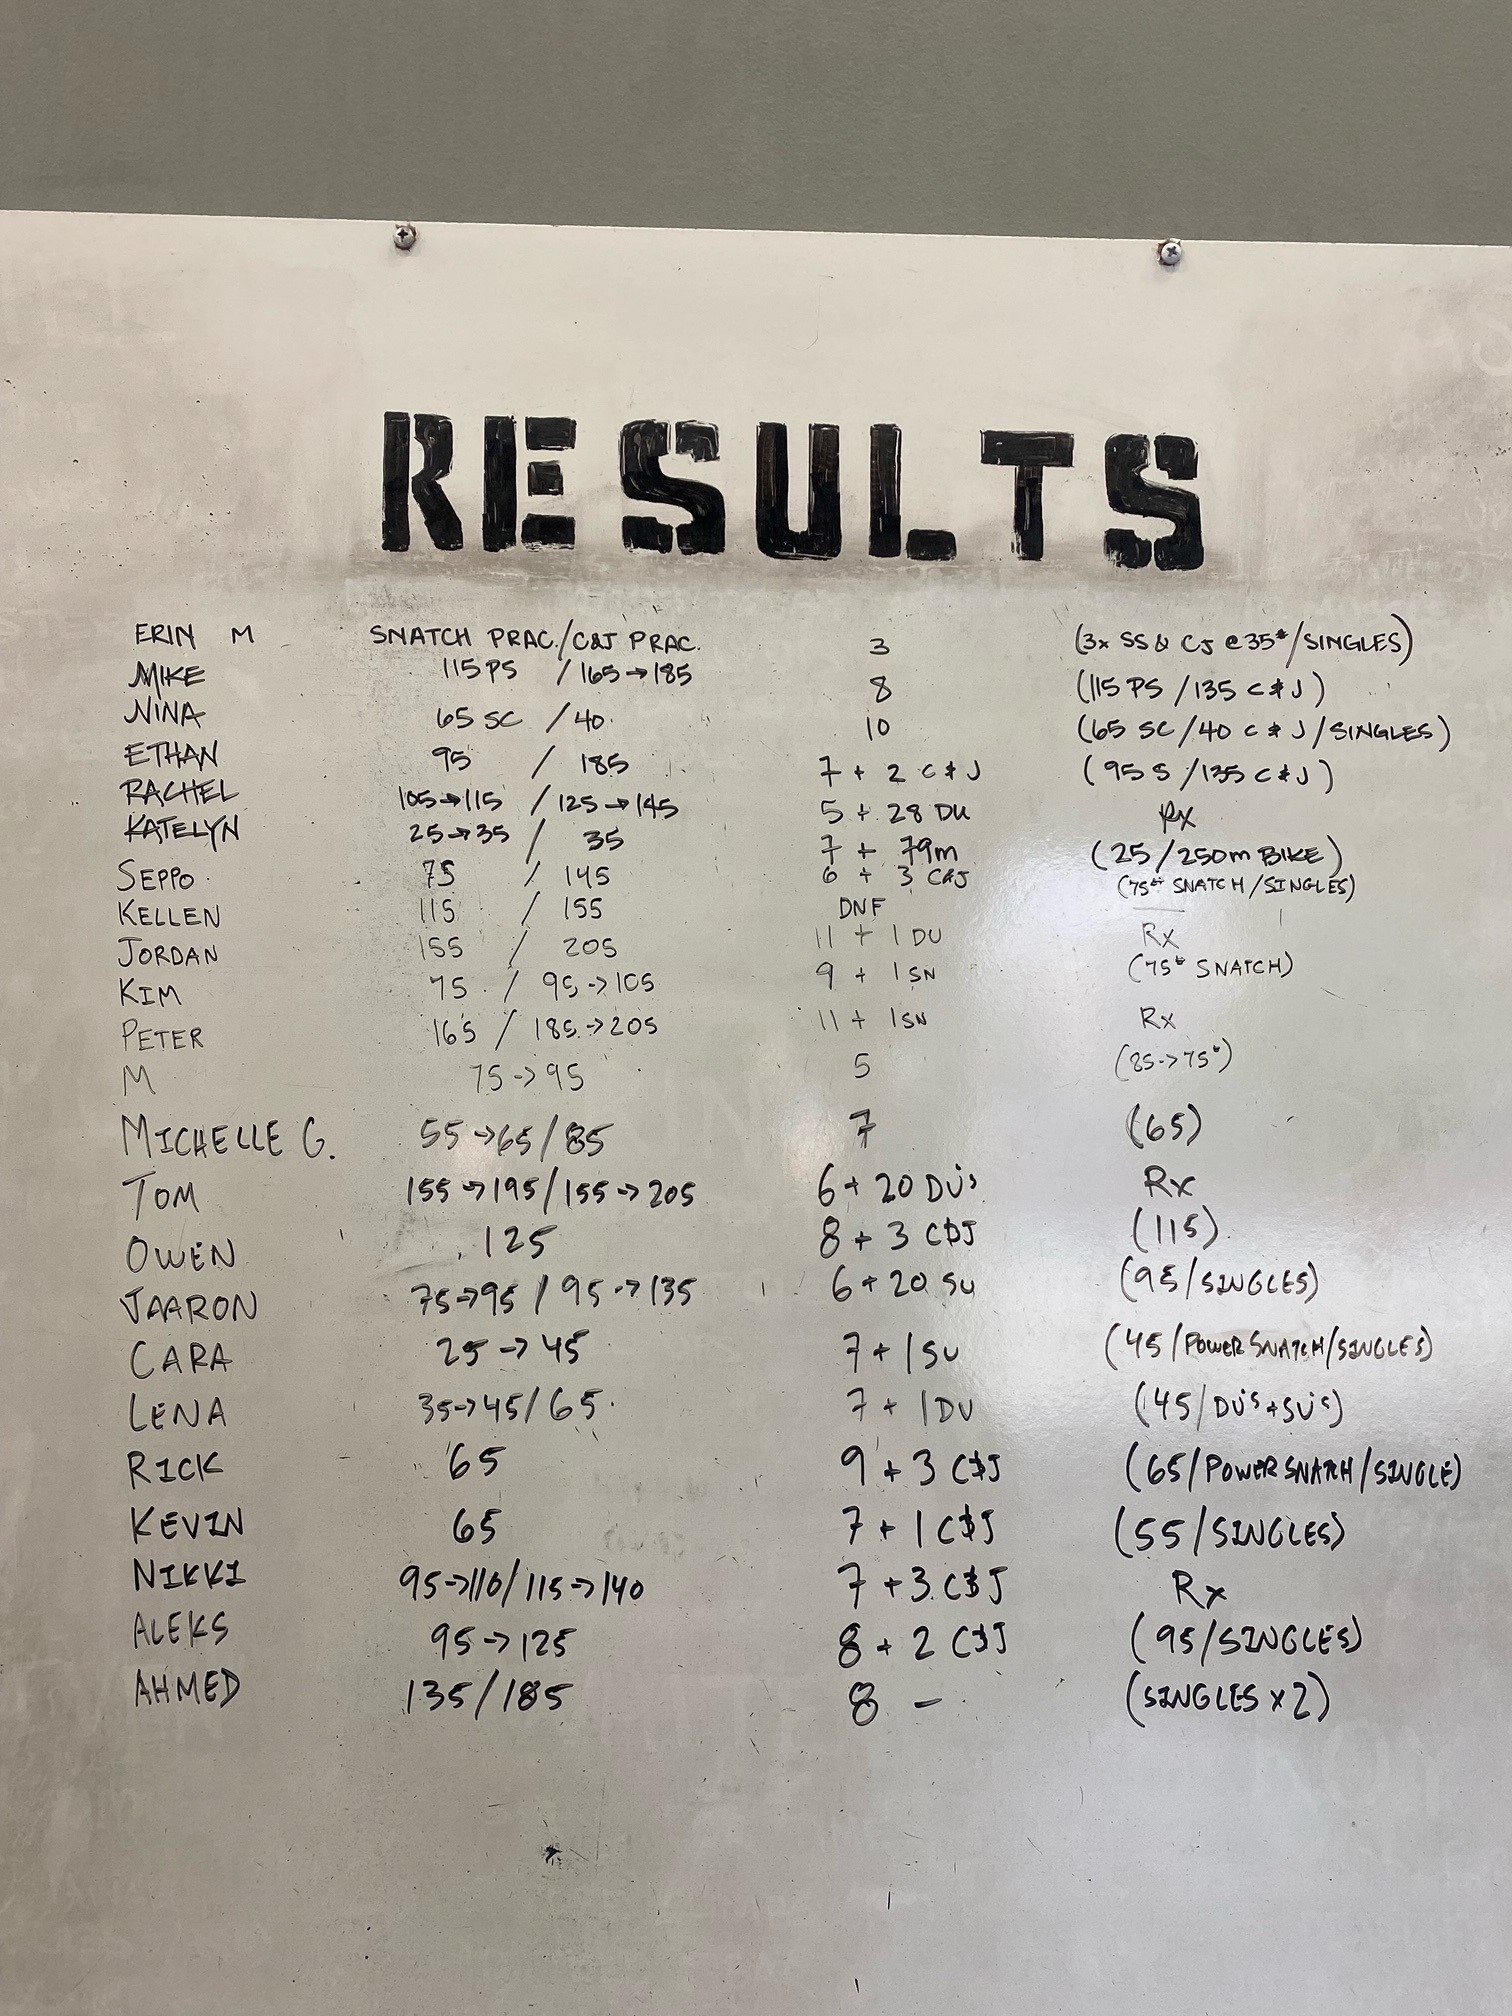 RESULTS
ERIN M SNATCH PRAC./C&J PRAC. 3 (3x SS & CJ @ 35#/SINGLES)
MIKE 115 PS / 165→185 8 (115 PS / 135 C & J)
NINA 65 SC / 40 10 (65 SC / 40 C & J / SINGLES)
ETHAN 95 / 185 7 + 2 C & J (95 S / 135 C & J)
RACHEL 105→115 / 125→145 5 + 28 DU Rx
KATELYN 25→35 / 35 7 + 79m (25 / 250m BIKE)
SEPPO 75 / 145 6 + 3 C&J (75# SNATCH / SINGLES)
KELLEN 115 / 155 DNF —
JORDAN 155 / 205 11 + 1 DU Rx
KIM 75 / 95→105 9 + 1 SN (75# SNATCH)
PETER 165 / 185→205 11 + 1 SN Rx
M 75→95 5 (85→75#)
MICHELLE G. 55→65/85 7 (65)
TOM 155→195/155→205 6 + 20 DU's Rx
OWEN 125 8 + 3 C&J (115)
JAARON 75→95 / 95→135 6 + 20 SU (95/SINGLES)
CARA 25→45 7 + 1 SU (45/POWER SNATCH/SINGLES)
LENA 35→45/65 7 + 1 DU (45/DU's + SU's)
RICK 65 9 + 3 C&J (65/POWER SNATCH/SINGLE)
KEVIN 65 7 + 1 C&J (55/SINGLES)
NIKKI 95→110/115→140 7 + 3 C&J Rx
ALEKS 95→125 8 + 2 C&J (95/SINGLES)
AHMED 135/185 8 – (SINGLES x 2)